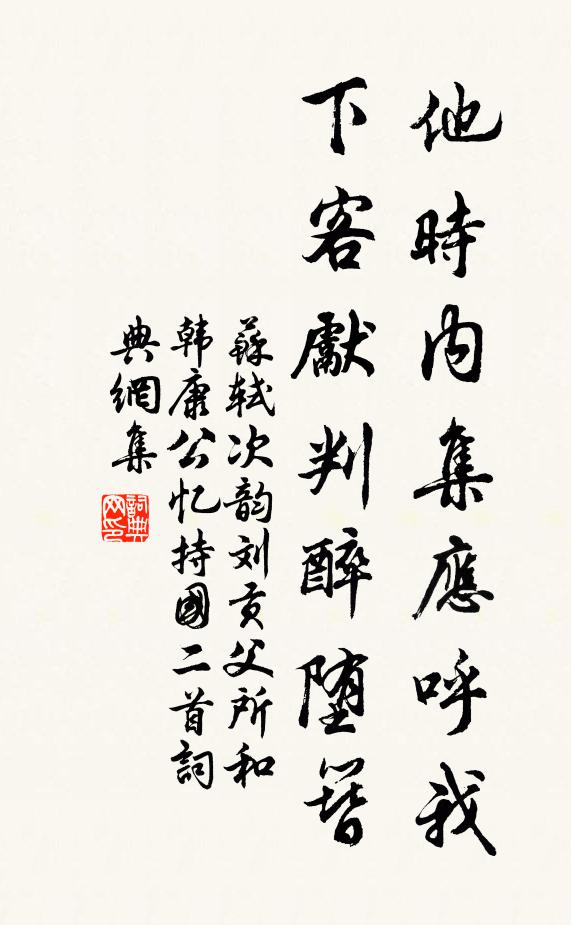 他時内集應呼我
下客獻判醉堕簪
蘇轼次韵刘贡父所和
韩康公忆持國二首詞
典網集
詞典网印